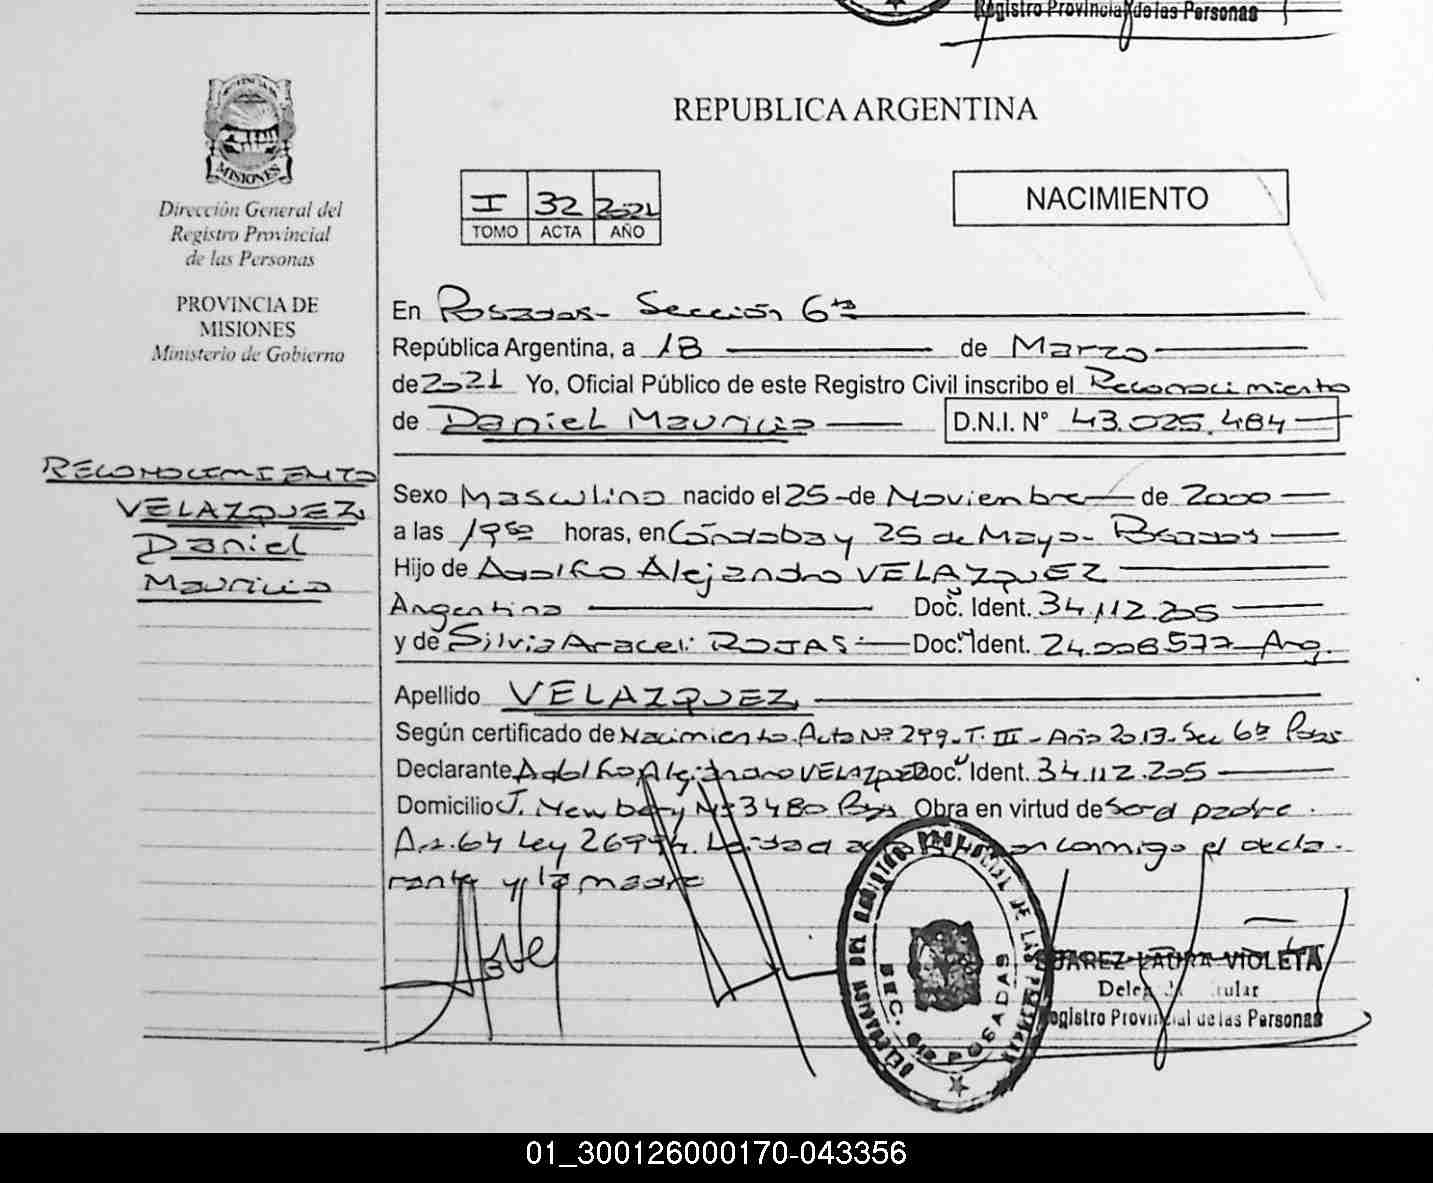 Registro Provincial de las Personas
REPUBLICA ARGENTINA
PROVINCIA DE
MISIONES
Dirección General del
Registro Provincial
de las Personas
PROVINCIA DE
MISIONES
Ministerio de Gobierno
I 32 2021
TOMO ACTA AÑO
NACIMIENTO
En Posadas- Sección 6ta
República Argentina, a 18 de Marzo
de 2021 Yo, Oficial Público de este Registro Civil inscribo el Reconocimiento
de Daniel Mauricio D.N.I. Nº 43.025.484
RECONOCIMIENTO
VELAZQUEZ
Daniel
Mauricio
Sexo Masculino nacido el 25 de Noviembre de 2000
a las 19 horas, en Córdoba y 25 de Mayo- Posadas
Hijo de Adolfo Alejandro VELAZQUEZ
Argentino Doc. Ident. 34.112.205
y de Silvia Araceli ROJAS Doc. Ident. 24.008.577 Arg.
Apellido VELAZQUEZ
Según certificado de Nacimiento Acta Nº 299- T. III - Año 2013- Sec 6ta Pdas
Declarante Adolfo Alejandro VELAZQUEZ Doc. Ident. 34.112.205
Domicilio J. Newbery Nº 3480 Pdas Obra en virtud de Ser el padre.
Art. 64 Ley 26994. Leída el acta conmigo el decla-
rante y la madre
DELEGACION DEL REGISTRO PROVINCIAL DE LAS PERSONAS
SEC. 6ta POSADAS
SUAREZ LAURA VIOLETA
Registro Provincial de las Personas
01_300126000170-043356